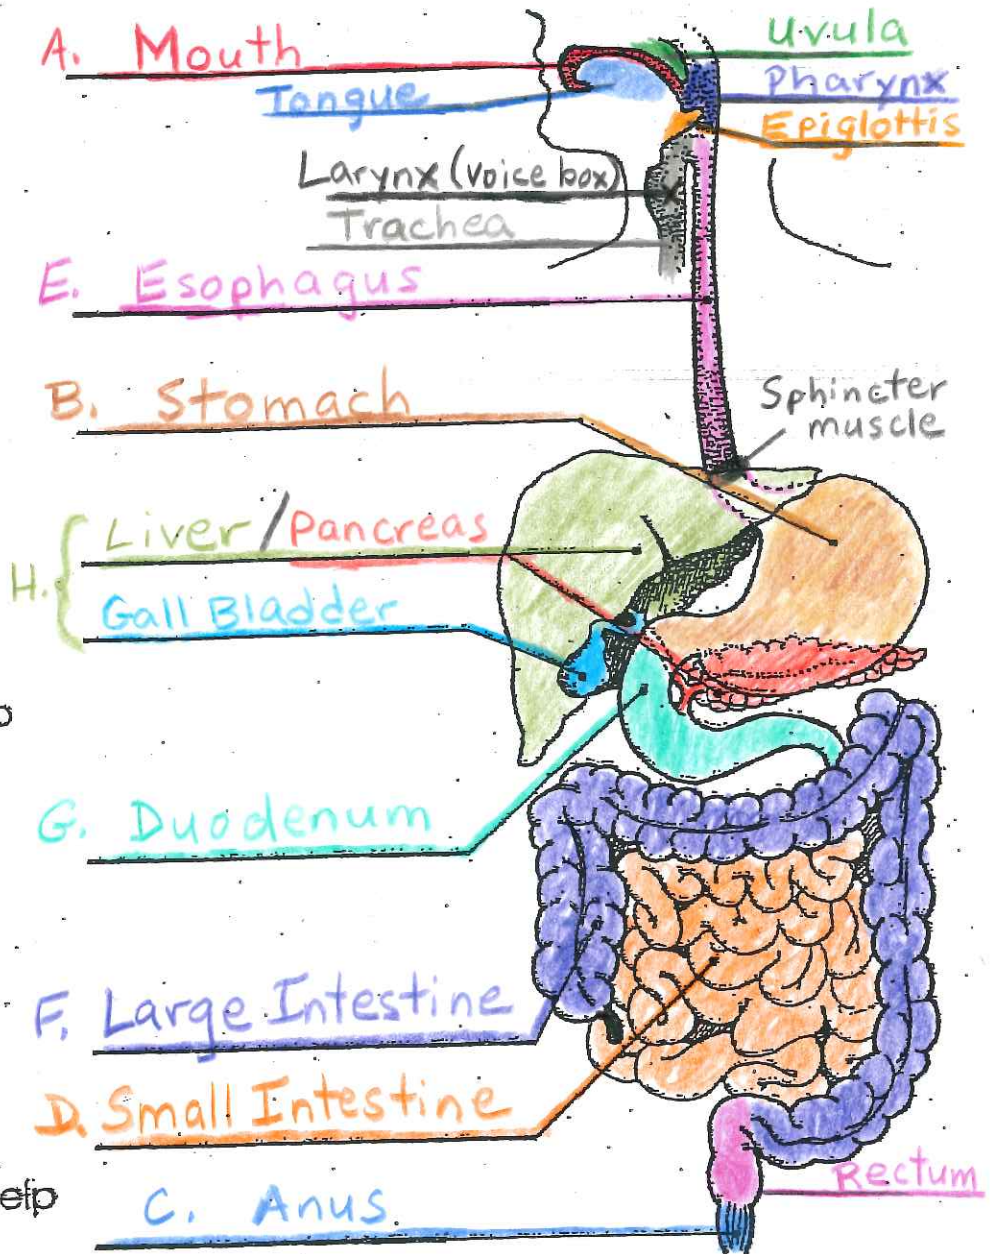 A. Mouth
Uvula
Tongue
Pharynx
Epiglottis
Larynx (Voice box)
Trachea
E. Esophagus
B. Stomach
Sphincter
muscle
H.
Liver/Pancreas
Gall Bladder
G. Duodenum
F. Large Intestine
D. Small Intestine
Rectum
C. Anus